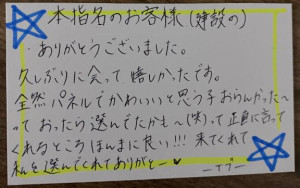 本指名のお客様(建設の)
ありがとうございました。
久しぶりに会って嬉しかったです。
全然パネルでかわいいと思う子おらんかった〜
っておったら選んでたかも〜(笑)って正直に言って
くれるところほんまに良い!!! 来てくれて
私を選んでくれてありがとー♥